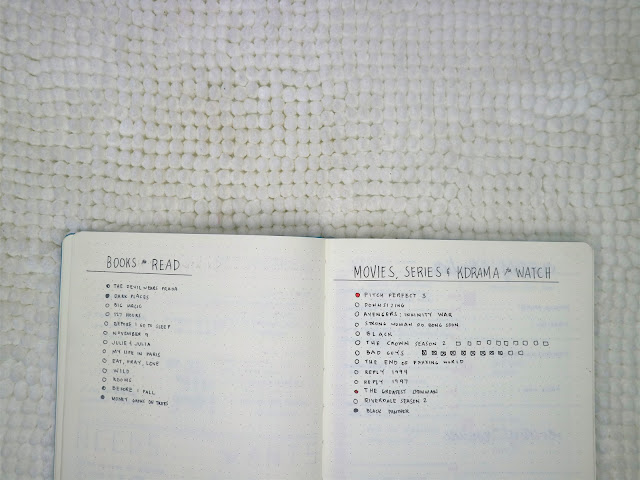 BOOKS to READ
THE DEVIL WEARS PRADA
DARK PLACES
BIG MAGIC
BEFORE I GO TO SLEEP
NOVEMBER 9
JULIE & JULIA
MY LIFE IN PARIS
EAT, PRAY, LOVE
WILD
ROOMS
BEFORE I FALL
MONEY GROWS ON TREES
MOVIES, SERIES & KDRAMA to WATCH
PITCH PERFECT 3
DOWNSIZING
AVENGERS: INFINITY WAR
STRONG WOMAN DO BONG SOON
BLACK
THE CROWN SEASON 2
BAD GUYS
THE END OF FUCKING WORLD
REPLY 1994
REPLY 1997
THE GREATEST SHOWMAN
RIVERDALE SEASON 2
BLACK PANTHER